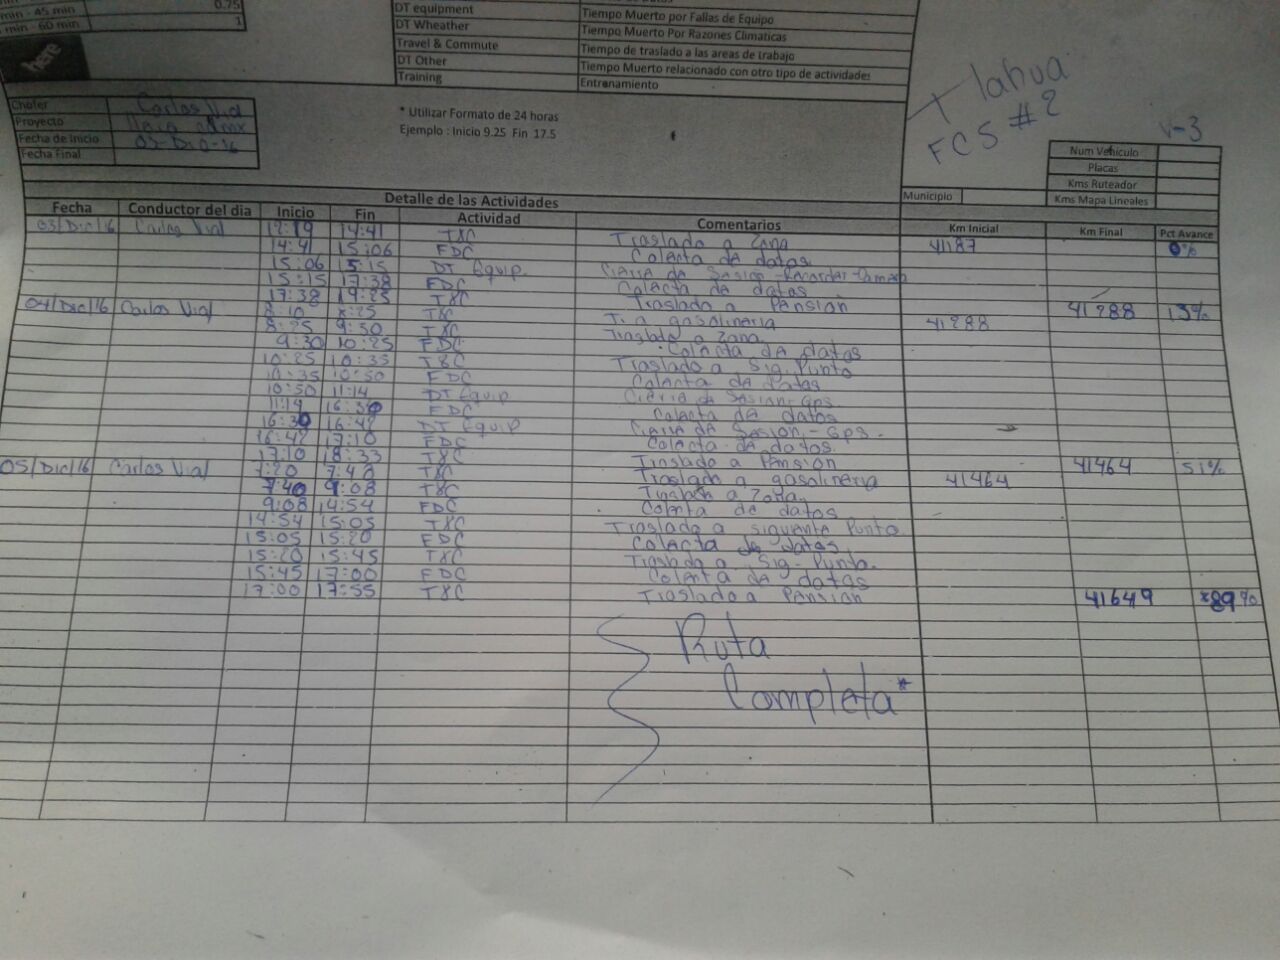 min - 45 min 0.75
min - 60 min 1
here
DT equipment Tiempo Muerto por Fallas de Equipo
DT Wheather Tiempo Muerto Por Razones Climaticas
Travel & Commute Tiempo de traslado a las areas de trabajo
DT Other Tiempo Muerto relacionado con otro tipo de actividades
Training Entrenamiento
* Utilizar Formato de 24 horas
Ejemplo : Inicio 9.25 Fin 17.5
Tlahua
FCS #2
V-3
Chofer Carlos Vial
Proyecto
Fecha de Inicio 03-Dic-16
Fecha Final
Num Vehiculo
Placas
Kms Ruteador
Municipio Kms Mapa Lineales
Detalle de las Actividades
Fecha Conductor del dia Inicio Fin Actividad Comentarios Km Inicial Km Final Pct Avance
03/Dic/16 Carlos Vial 12:19 14:41 T&C Traslado a Zona 41187 0%
14:41 15:06 FDC Colecta de datos
15:06 15:15 DT Equip. Cierra de Sasion-Recorder-Camara
15:15 17:38 FDC Colacta de datos
17:38 19:25 T&C Traslado a Pension 41288 13%
04/Dic/16 Carlos Vial 8:10 8:25 T&C T. a gasolineria 41288
8:25 9:30 T&C Traslado a Zona
9:30 10:25 FDC Colacta dA datos
10:25 10:35 T&C Traslado a Sig. Punto
10:35 10:50 FDC Colacta dA datos
10:50 11:14 DT Equip Cierra de Sasion-Gps.
11:14 16:30 FDC Colacta dA datos
16:30 16:42 DT Equip Cierra dA Sasion-Gps.
16:42 17:10 FDC Colacta dA datos
17:10 18:33 T&C Traslado a Pension 41464 51%
05/Dic/16 Carlos Vial 7:20 7:40 T&C Traslado a gasolineria 41464
7:40 9:08 T&C Traslado a Zona
9:08 14:54 FDC Colecta de datos
14:54 15:05 T&C Traslado a siguiente Punto
15:05 15:20 FDC Colacta de datos
15:20 15:45 T&C Traslado a Sig-Punto.
15:45 17:00 FDC Colecta dA datos
17:00 17:55 T&C Traslado a Pension 41649 *89%
Ruta
Completa*